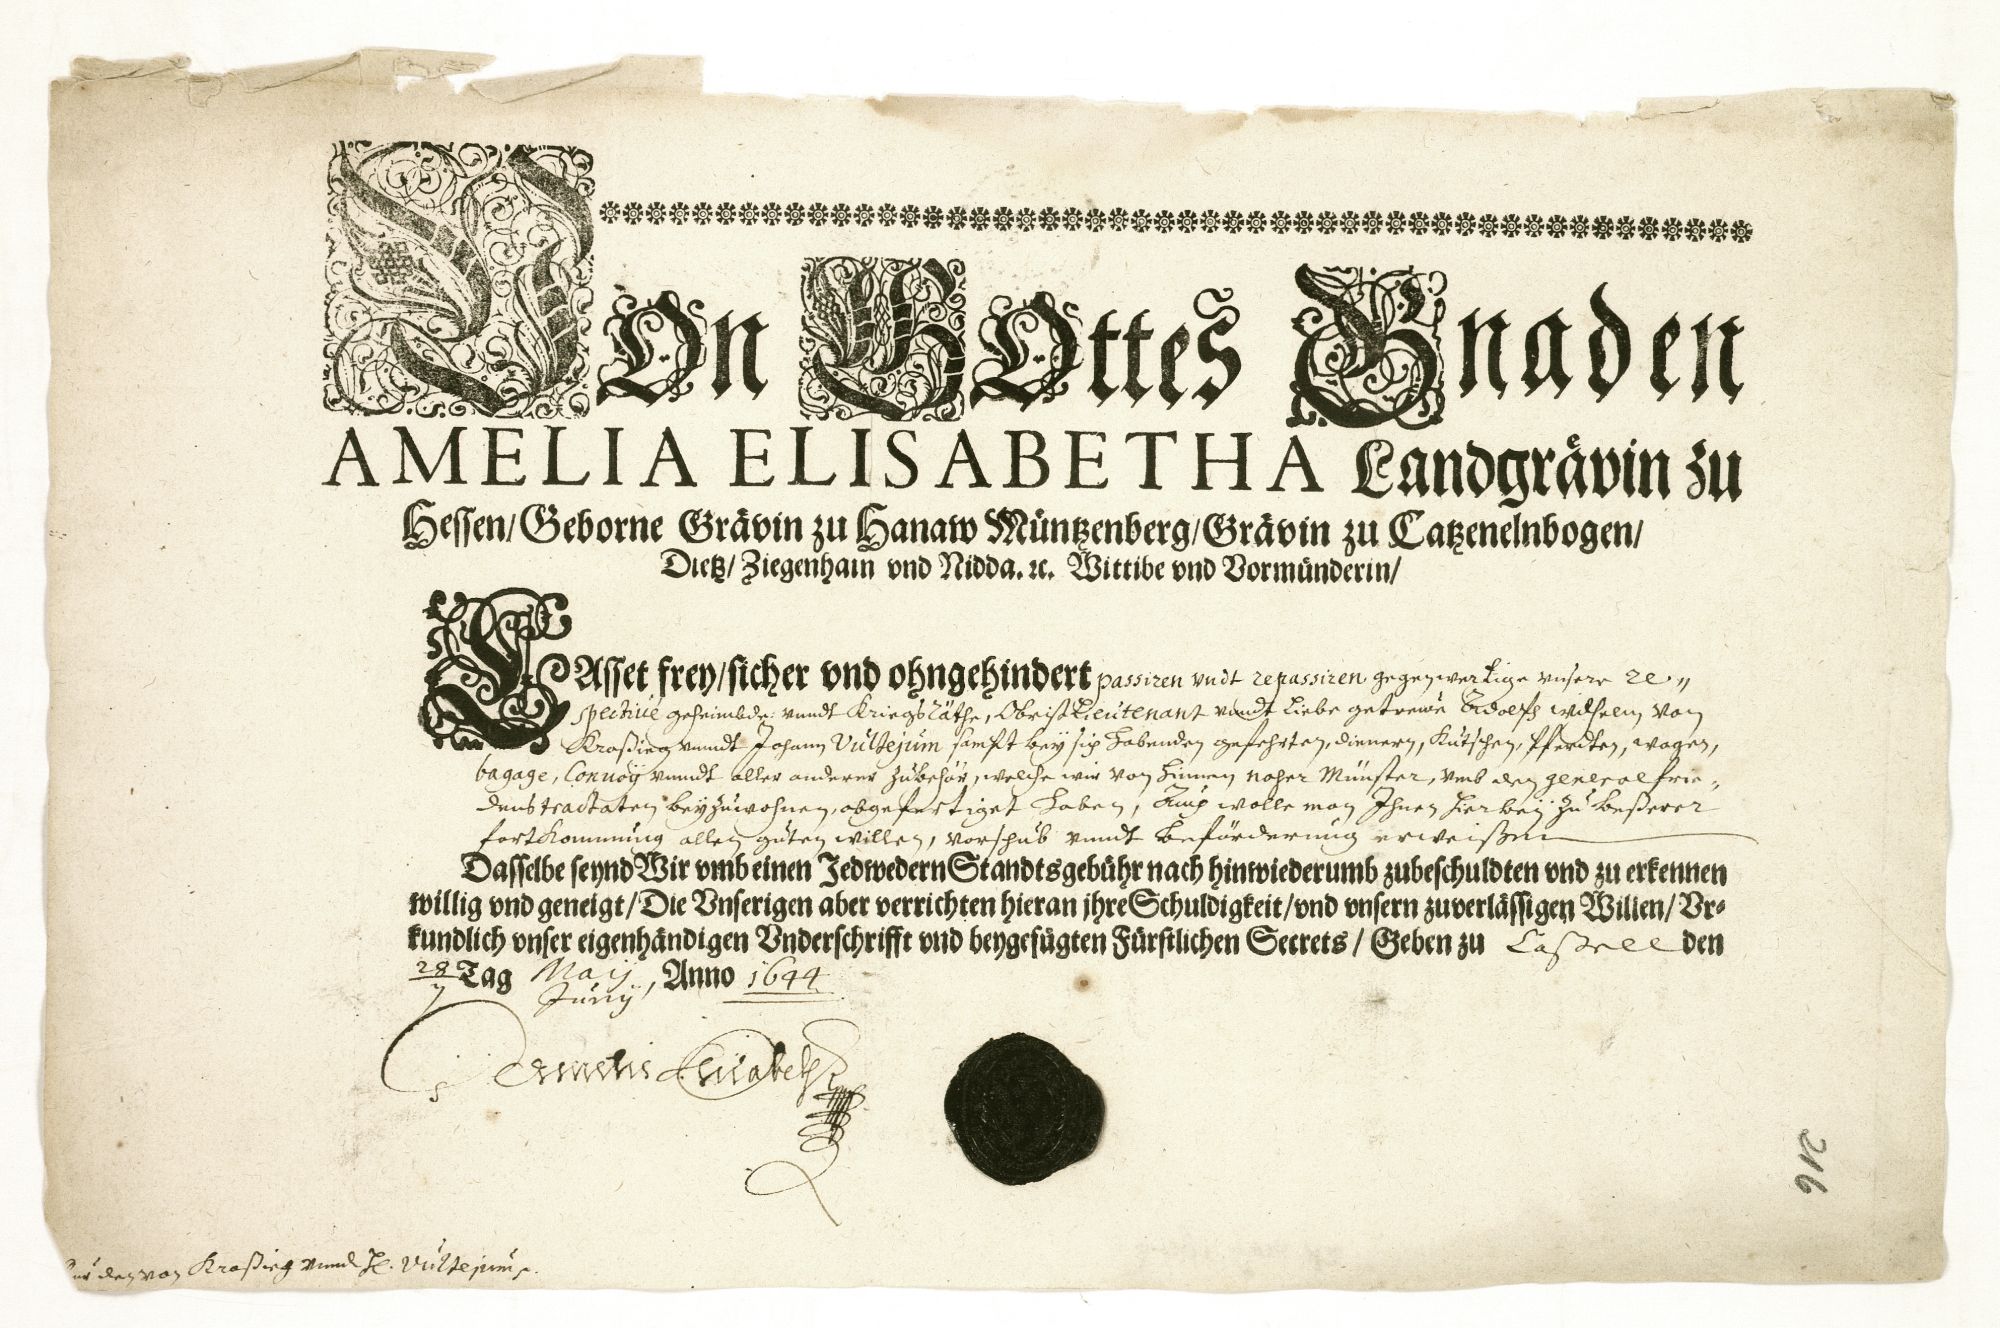 VOn GOttes Gnaden
AMELIA ELISABETHA Landgrävin zu
Hessen/Geborne Grävin zu Hanaw Müntzenberg/Grävin zu Catzenelnbogen/
Dietz/Ziegenhain vnd Nidda.ꝛc. Wittibe vnd Vormünderin/
LAsset frey/sicher vnd ohngehindert passiren vndt repassiren gegenwertige vnsere re„
spective geheimbde: vnndt KriegsRäthe, ObristLieutenant vnndt Liebe getrewe Adolff wilhelm von
Kroßieg vnndt Johann Vultejum sampt bey sich habenden gefehrten, dienern, Kutschen, Pferdten, wagen,
bagage, Convoÿ vnndt aller anderer Zubehör, welche wir von hinnen naher Münster, vmb den general frie„
denstractaten beyzuwohnen, abgefertiget haben, Auch wolle man Ihnen hierbeÿ zu beßerer
fortkommung allen guten willen, vorschub vnndt beförderung erweißen
Dasselbe seynd Wir vmb einen Jedwedern Standtsgebühr nach hinwiederumb zubeschuldten vnd zu erkennen
willig vnd geneigt/Die Vnserigen aber verrichten hieran jhre Schuldigkeit/vnd vnsern zuverlässigen Willen/Vr-
kundlich vnser eigenhändigen Vnderschrifft vnd beygefügten Fürstlichen Secrets/Geben zu Caßell den
28/7 Tag Maij/Junij, Anno 1644
Amelie Elisabeth
216
den von Kroßieg vnndt H. Vultejum.